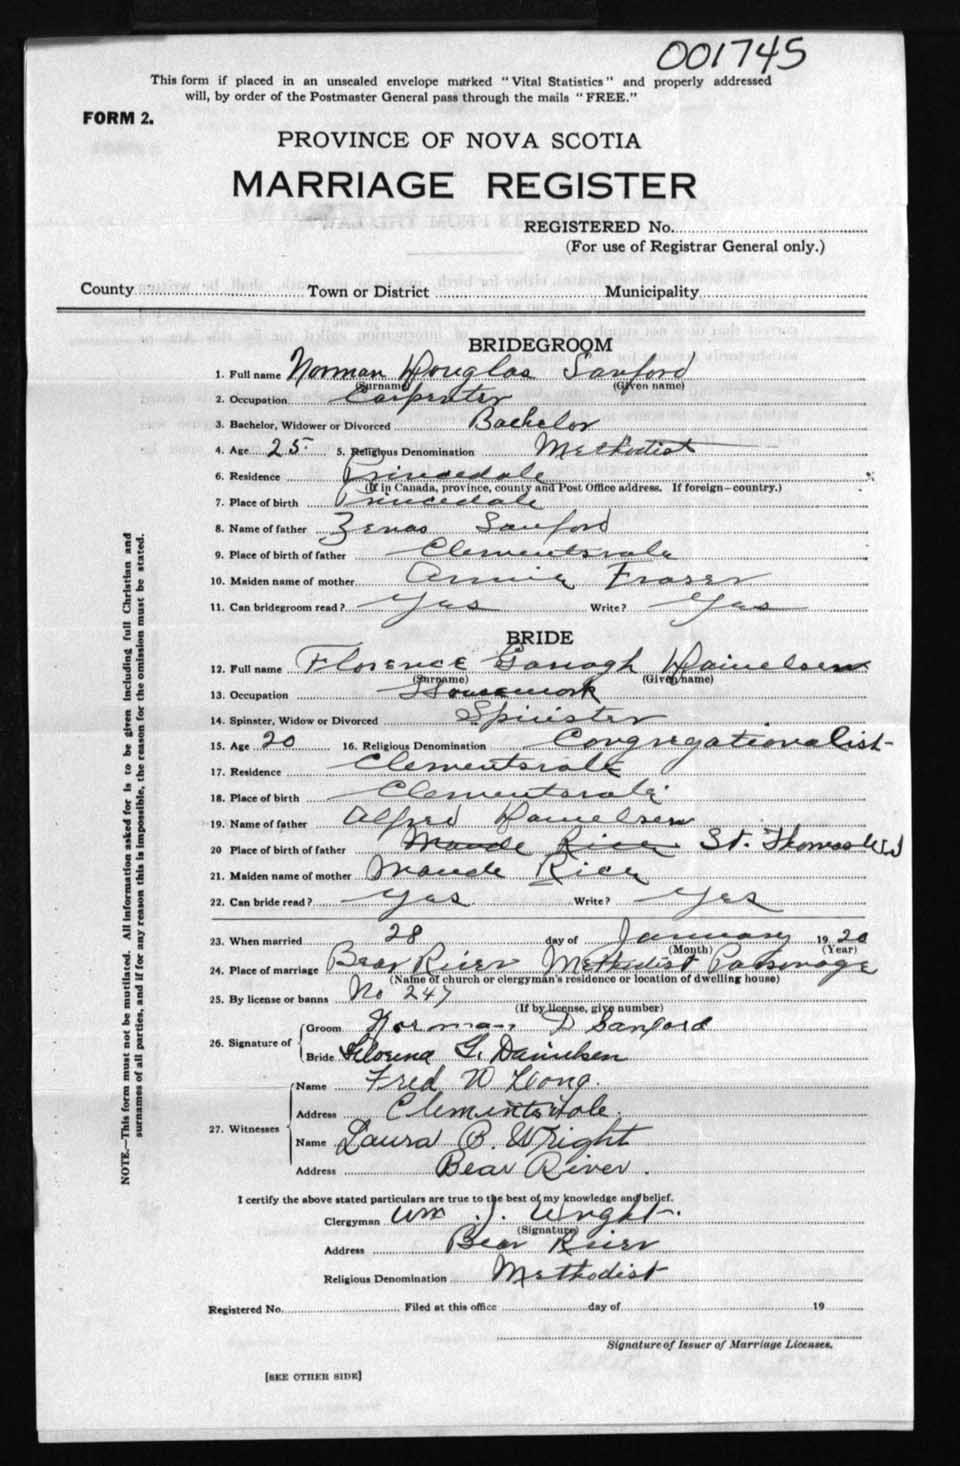 001745
This form if placed in an unsealed envelope marked "Vital Statistics" and properly addressed
will, by order of the Postmaster General pass through the mails "FREE."
FORM 2.
PROVINCE OF NOVA SCOTIA
MARRIAGE REGISTER
REGISTERED No.
(For use of Registrar General only.)
County Town or District Municipality
BRIDEGROOM
1. Full name Norman Douglas Sanford
(Surname) (Given name)
2. Occupation Carpenter
3. Bachelor, Widower or Divorced Bachelor
4. Age 25 5. Religious Denomination Methodist
6. Residence Princedale
(If in Canada, province, county and Post Office address. If foreign—country.)
7. Place of birth Princedale
8. Name of father Zenas Sanford
9. Place of birth of father Clementsvale
10. Maiden name of mother Annie Fraser
11. Can bridegroom read? Yes Write? Yes
BRIDE
12. Full name Florence Danielsen
(Surname) (Given name)
13. Occupation Housework
14. Spinster, Widow or Divorced Spinster
15. Age 20 16. Religious Denomination Congregationalist
17. Residence Clementsvale
18. Place of birth Clementsvale
19. Name of father Alfred Danielsen
20 Place of birth of father Maude Rice St. Thomas
21. Maiden name of mother Maude Rice
22. Can bride read? Yes Write? Yes
23. When married 28 day of January 1920
(Month) (Year)
24. Place of marriage Bear River Methodist Parsonage
(Name of church or clergyman's residence or location of dwelling house)
25. By license or banns No 247
(If by license, give number)
26. Signature of Groom Norman D Sanford
Bride G. Danielsen
27. Witnesses Name Fred W Long.
Address Clementsvale.
Name Laura B. Wright
Address Bear River.
I certify the above stated particulars are true to the best of my knowledge and belief.
Clergyman Wm. J. Wright.
(Signature)
Address Bear River
Religious Denomination Methodist
Registered No. Filed at this office day of 19
Signature of Issuer of Marriage Licenses.
[SEE OTHER SIDE]
NOTE.—This form must not be mutilated. All information asked for is to be given including full Christian and
surnames of all parties, and if for any reason this is impossible, the reason for the omission must be stated.